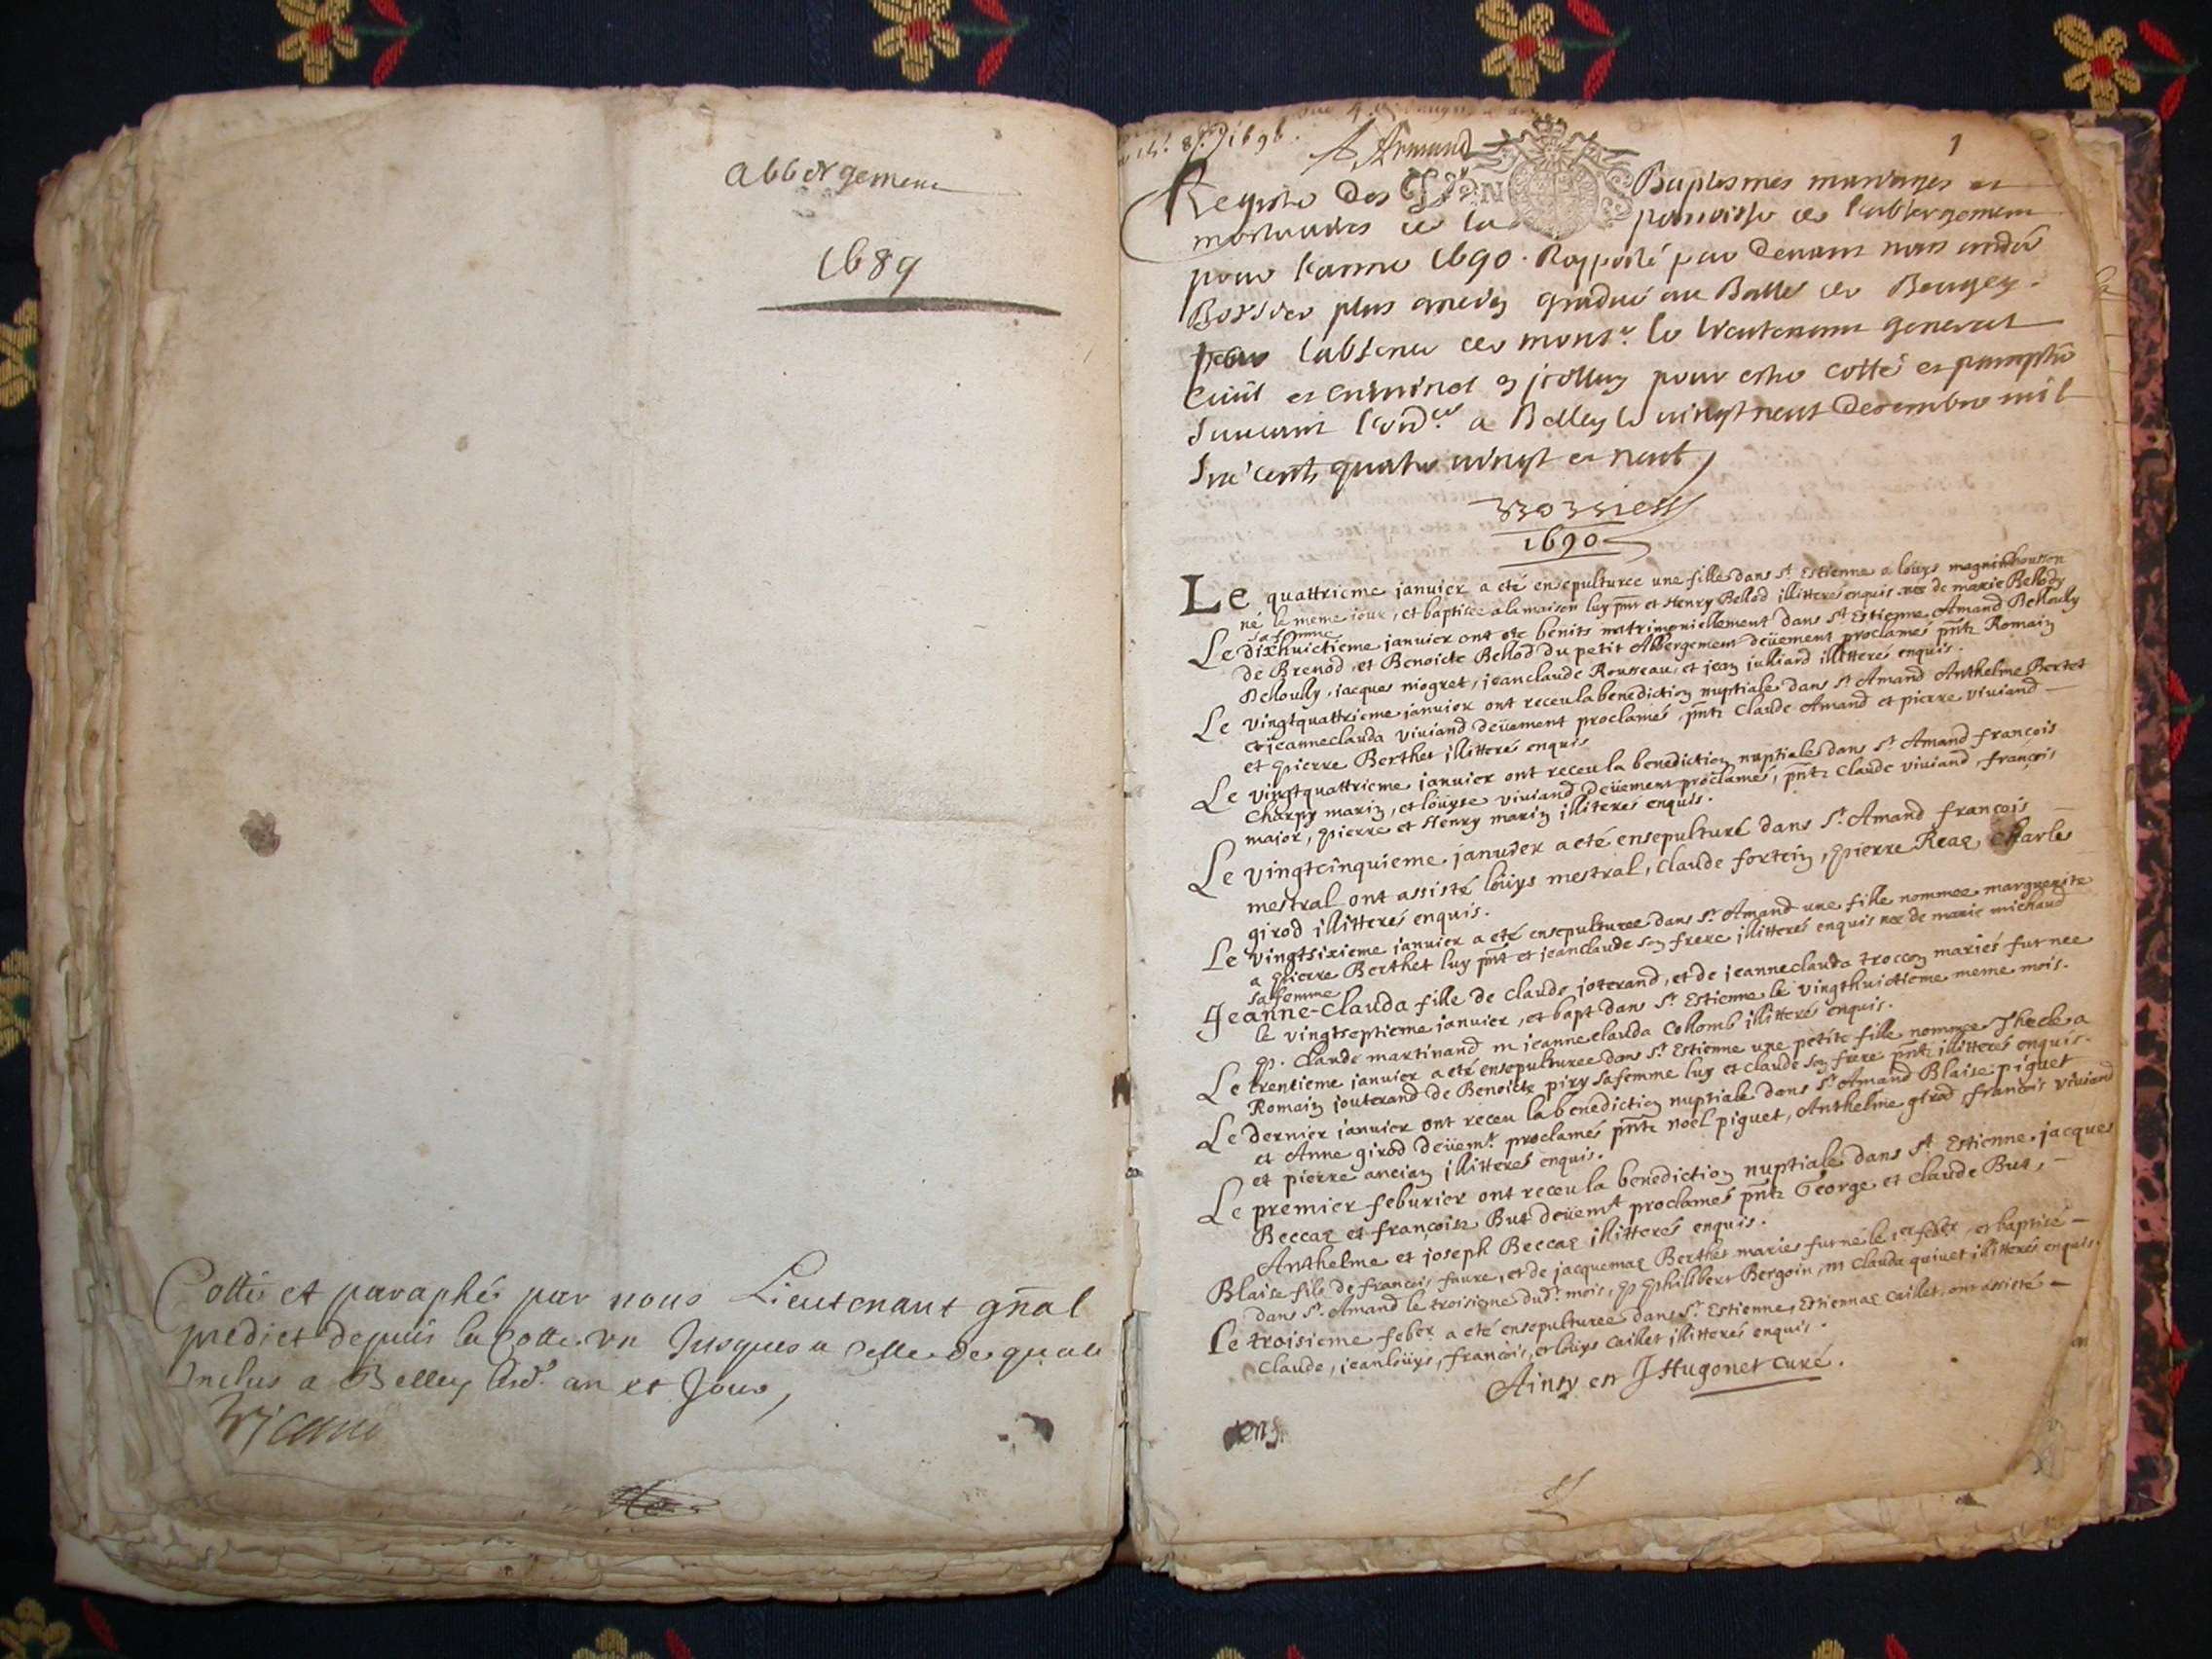 abbergement
1689
Cotté et paraphé par nous Lieutenant gnãl
predict depuis la Cotte un Jusques a Celle de quatre
Inclus a Belley lesd. an et Jour,
1
Armand
Registre des Baptesmes mariages et
mortuaires de la parroisse de l'abbergement
pour l'anne 1690. Rapporté par devant nous
plus ancien gradué au Balliage de Beugey.
pour l'absence de monsr. le lieutenant general
Civil et Criminel pour estre cotté et paraphé
suivant l'ordce a Belley le vingt neuf decembre mil
six cents quatre vingt et neuf
1690
Le quattrieme janvier a eté ensepulturee une fille dans st Estienne a louys magnin
né le meme jour, et baptisée a la maison luy pnt et Henry Bellod illitterés enquis nee de marie Bellod
sa femme
Le dixhuictieme janvier ont eté benits matrimoniellement dans st Estienne Amand
de Brenod, et Benoicte Bellod du petit Abbergement deüement proclamés pnts Romain
jacques niogret, jeanclaude Rousseau, et jean julliard illitterés enquis.
Le vingtquattrieme janvier ont receu la benediction nuptiale dans st Amand Anthelme Bertet
et jeanneclauda viviand deüement proclamés, pnts Claude Amand et pierre viviand
et pierre Berthet illitterés enquis
Le vingtquattrieme janvier ont receu la benediction nuptiale dans st Amand françois
Charpy marin, et loüyse viviand deüement proclamés, pnts Claude viviand, françois
major, pierre et Henry marin illiterés enquis.
Le vingtcinquieme janvier a eté ensepulturé dans st Amand françois
mestral ont assisté loüys mestral, Claude fortein, pierre Reaz Charles
girod illitterés enquis.
Le vingtsixieme janvier a eté ensepulturee dans st Amand une fille nommee marguerite
a pierre Berthet luy pnt et jeanclaude son frere illitterés enquis nee de marie michaud
sa femme
Jeanne-Clauda fille de Claude joterand, et de jeanneclauda troccon mariés fut nee
le vingtseptieme janvier, et bapt dans st Estienne le vingthuictieme meme mois.
p. Claude martinand m jeanneclauda Collomb illitterés enquis.
Le trentieme janvier a eté ensepulturee dans st Estienne une petite fille nommee Thecle a
Romain jouterand de Benoicte piry sa femme luy et Claude son frere pnts illitterés enquis.
Le dernier janvier ont receu la benediction nuptiale dans st Amand Blaise piguet
et Anne girod deüemt proclamés pnts noel piguet, Anthelme girod françois viviand
et pierre ancian illitterés enquis.
Le premier feburier ont receu la benediction nuptiale dans st Estienne jacques
Beccaz et françoise But deüemt proclamés pnts George et Claude But,
Anthelme et joseph Beccaz illitterés enquis.
Blaise fils de françois faure, et de jacquemaz Berthet mariés fut né le 1er feber et baptisé
dans st Amand le troisieme dud. mois, p philibert Bergoin, m Clauda quivet illitterés enquis.
Le troisieme feber a eté ensepulturee dans st Estienne, Estiennaz Caillet, ont assisté
Claude, jeanloüys, françois, et loüys Caillet illitterés enquis.
Ainsy en J Hugonet Curé.